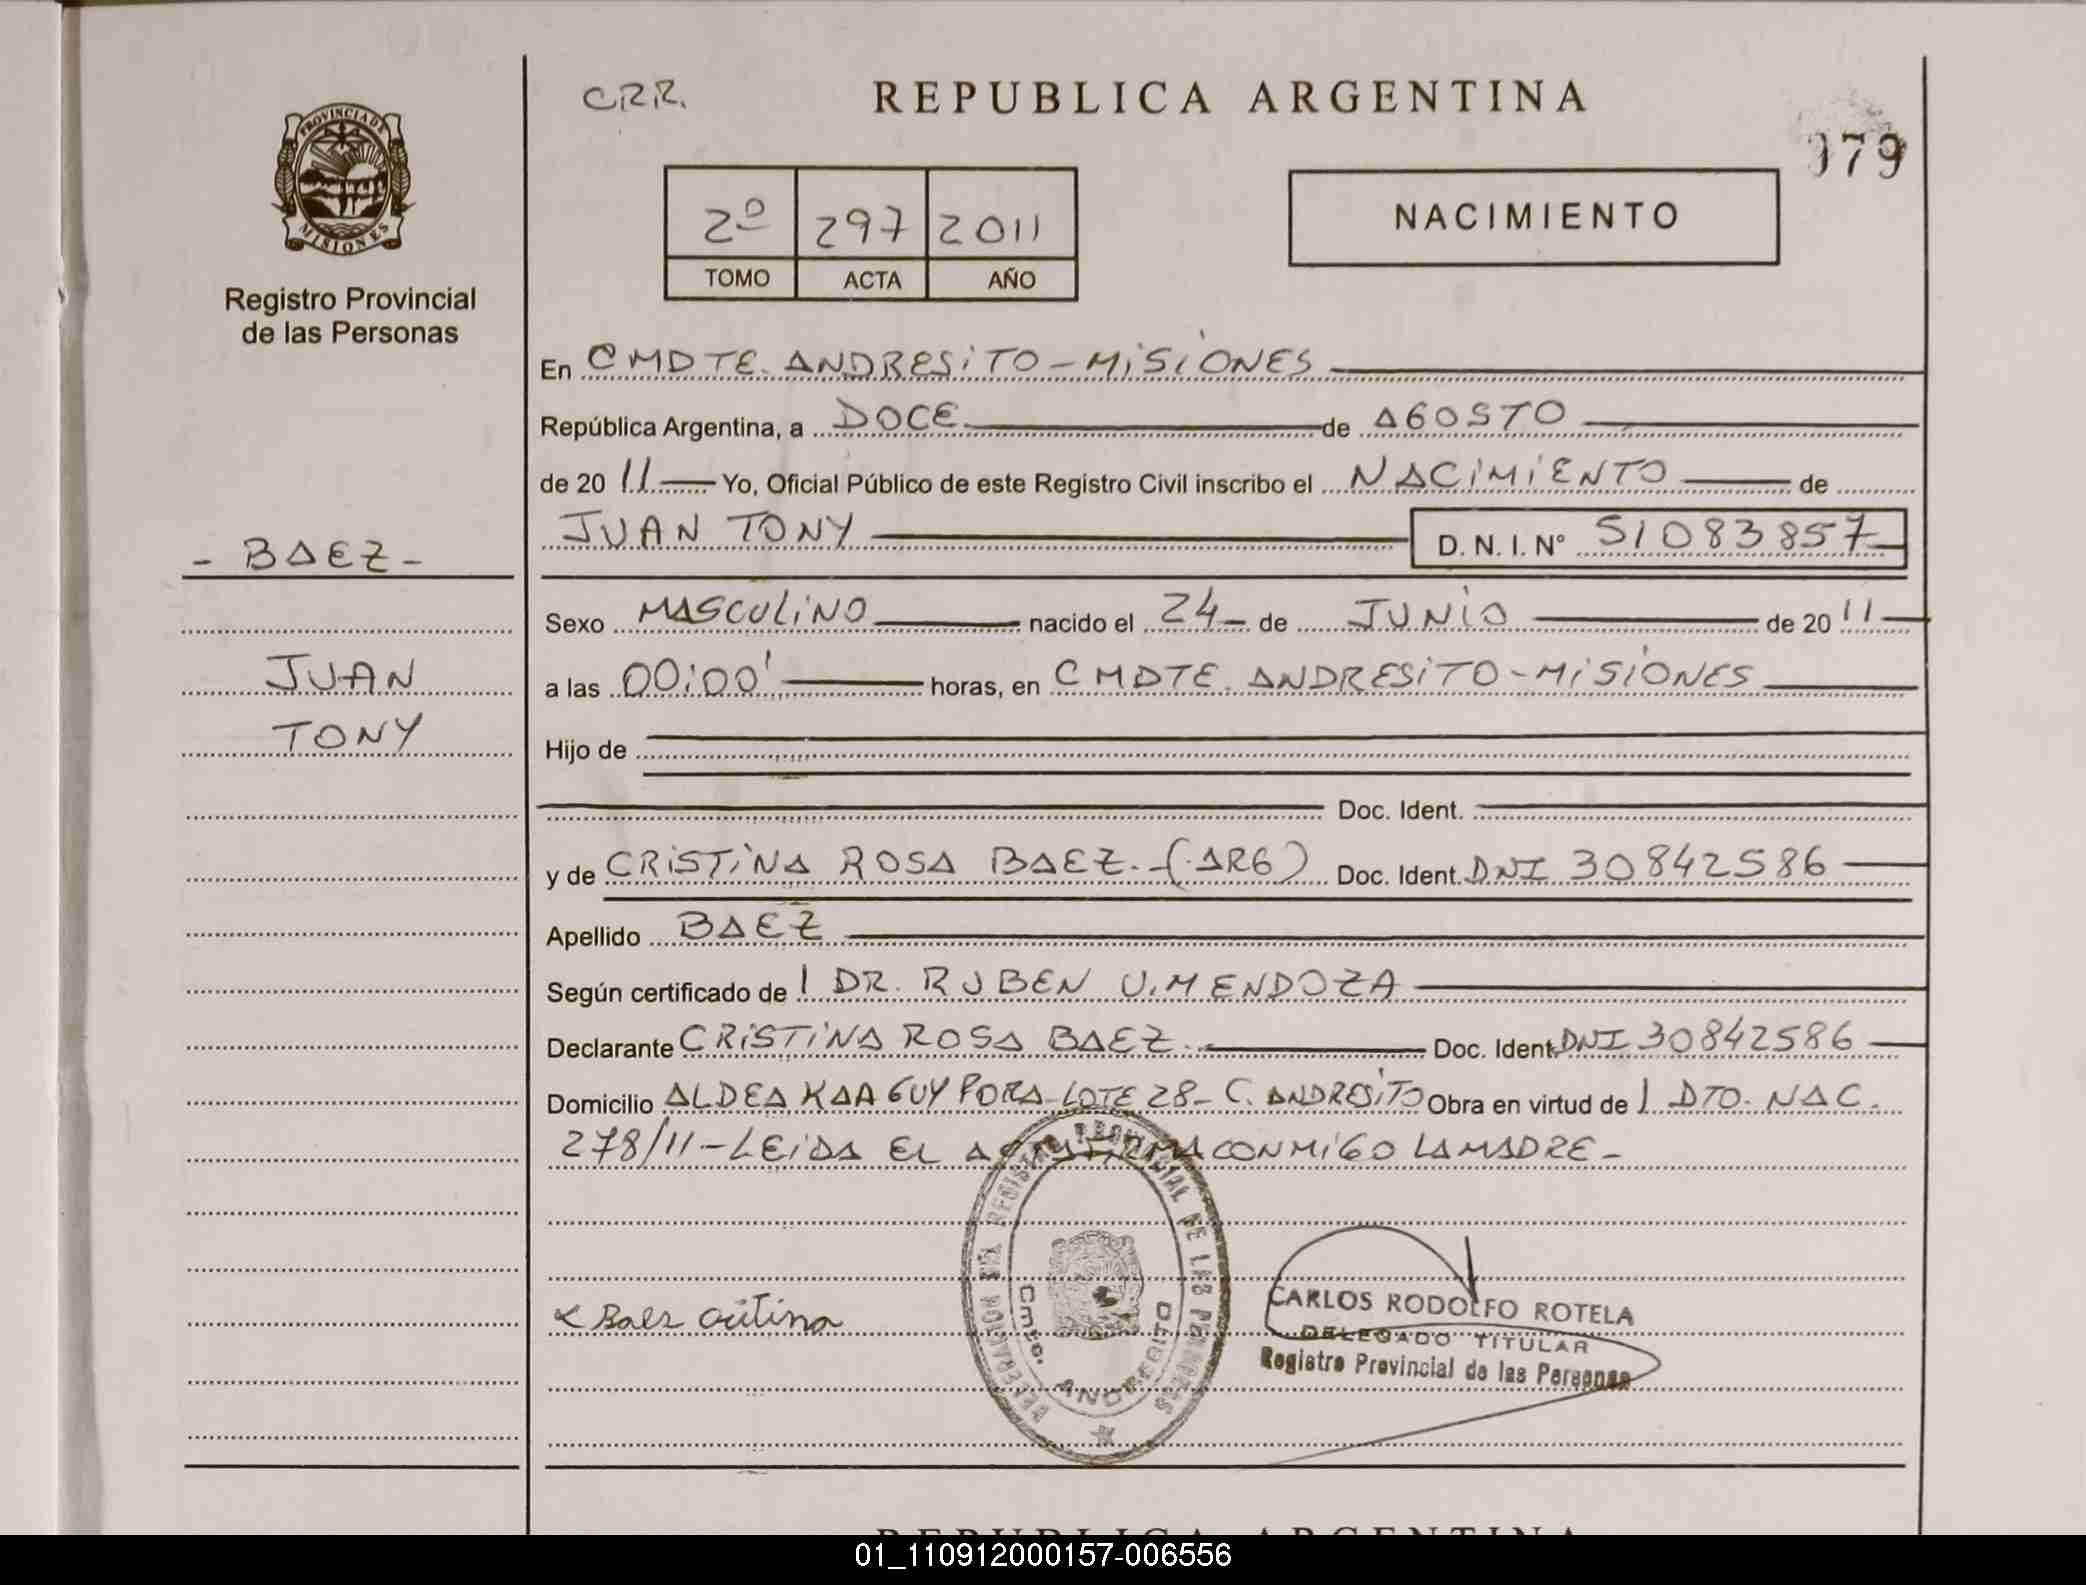 C.R.R.
REPUBLICA ARGENTINA
079
PROVINCIA DE
MISIONES
Registro Provincial
de las Personas
2º 297 2011
TOMO ACTA AÑO
NACIMIENTO
En CMDTE. ANDRESITO - MISIONES
República Argentina, a DOCE de AGOSTO
de 2011 Yo, Oficial Público de este Registro Civil inscribo el NACIMIENTO de
JUAN TONY D. N. I. Nº 51083857
- BAEZ -
JUAN
TONY
Sexo MASCULINO nacido el 24 de JUNIO de 2011
a las 00:00' horas, en CMDTE. ANDRESITO - MISIONES
Hijo de
Doc. Ident.
y de CRISTINA ROSA BAEZ. - (ARG) Doc. Ident. DNI 30842586
Apellido BAEZ
Según certificado de 1 DR. RUBEN U. MENDOZA
Declarante CRISTINA ROSA BAEZ. Doc. Ident. DNI 30842586
Domicilio ALDEA KAAGUY PORA - LOTE 28 - C. ANDRESITO Obra en virtud de 1 DTO. NAC.
278/11 - LEIDA EL ACTA FIRMA CONMIGO LA MADRE -
REGISTRO PROVINCIAL DE LAS PERSONAS
Cmte. ANDRESITO
x Baez Cristina
CARLOS RODOLFO ROTELA
DELEGADO TITULAR
Registro Provincial de las Personas
REPUBLICA ARGENTINA
01_110912000157-006556